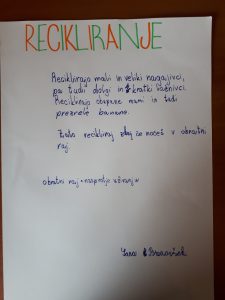 RECIKLIRANJE
Reciklirajo mali in veliki nagajivci,
pa tudi dolgi in kratki važnivci.
Reciklirajo obupane mami in tudi
prezrele banane.
Zato recikliraj zdaj če nočeš v obratni
raj.
obratni raj = nasprotje uživanja
Sara Brancižek